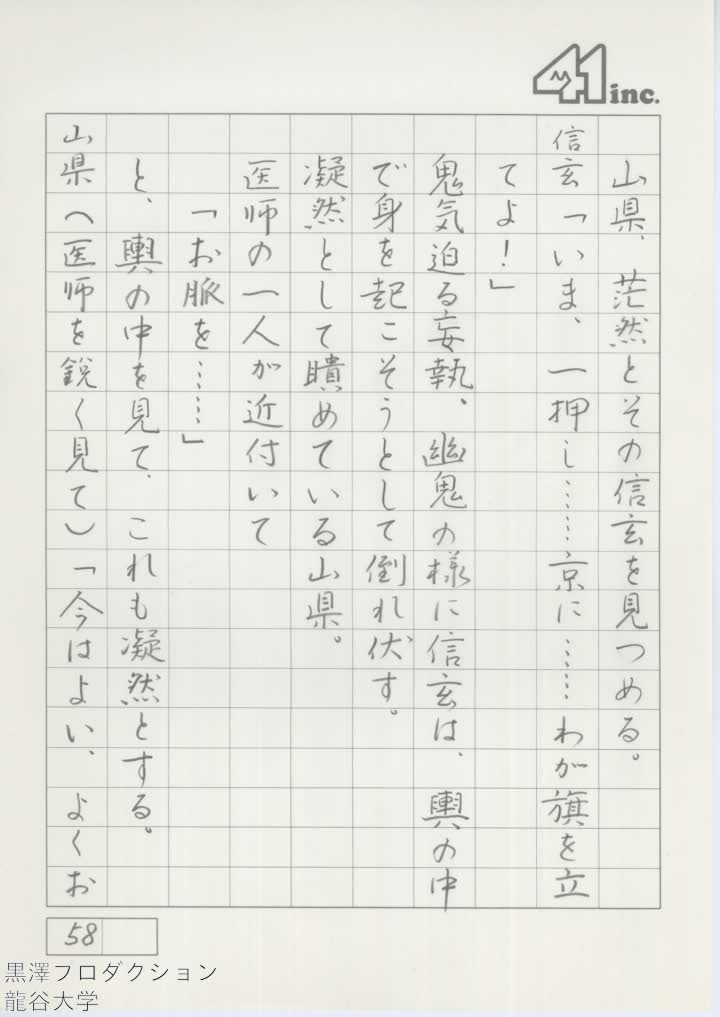 41 inc.
山県、茫然とその信玄を見つめる。
信玄「いま、一押し……京に……わが旗を立
てよ!」
鬼気迫る妄執、幽鬼の様に信玄は、輿の中
で身を起こそうとして倒れ伏す。
凝然として瞶めている山県。
医師の一人が近付いて
「お脈を……」
と、輿の中を見て、これも凝然とする。
山県(医師を鋭く見て)「今はよい、よくお
58
黒澤プロダクション
龍谷大学